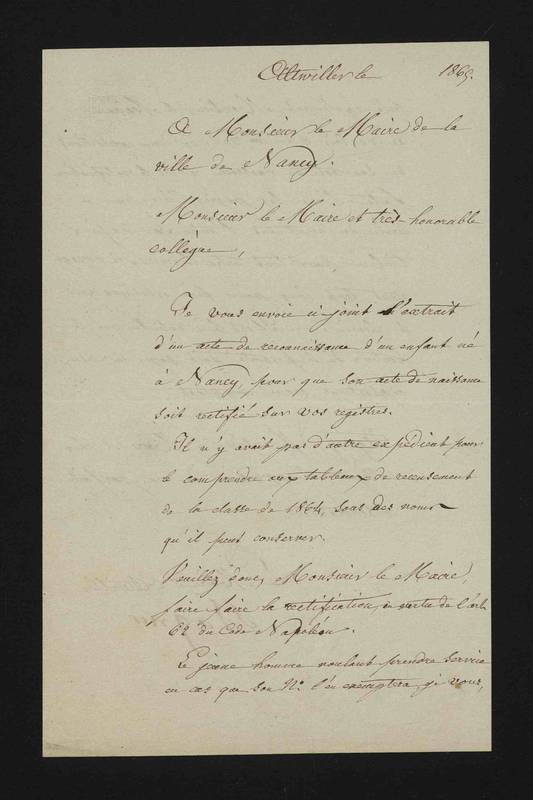 Altwiller le 1865.
A Monsieur le Maire de la
ville de Nancy.
Monsieur le Maire et très-honorable
collègue,
Je vous envoie ci-joint l'extrait
d'un acte de reconnaissance d'un enfant né
à Nancy, pour que son acte de naissance
soit rectifié sur vos registres.
Il n'y avait pas d'autre expédient pour
le comprendre aux tableaux de recensement
de la classe de 1864, sous des noms
qu'il peut conserver.
Veuillez donc, Monsieur le Maire,
faire faire la rectification, en vertu de l'art.
62 du Code Napoléon.
Le jeune homme voulant prendre service
en cas que son N.o l'en exemptera, je vous,